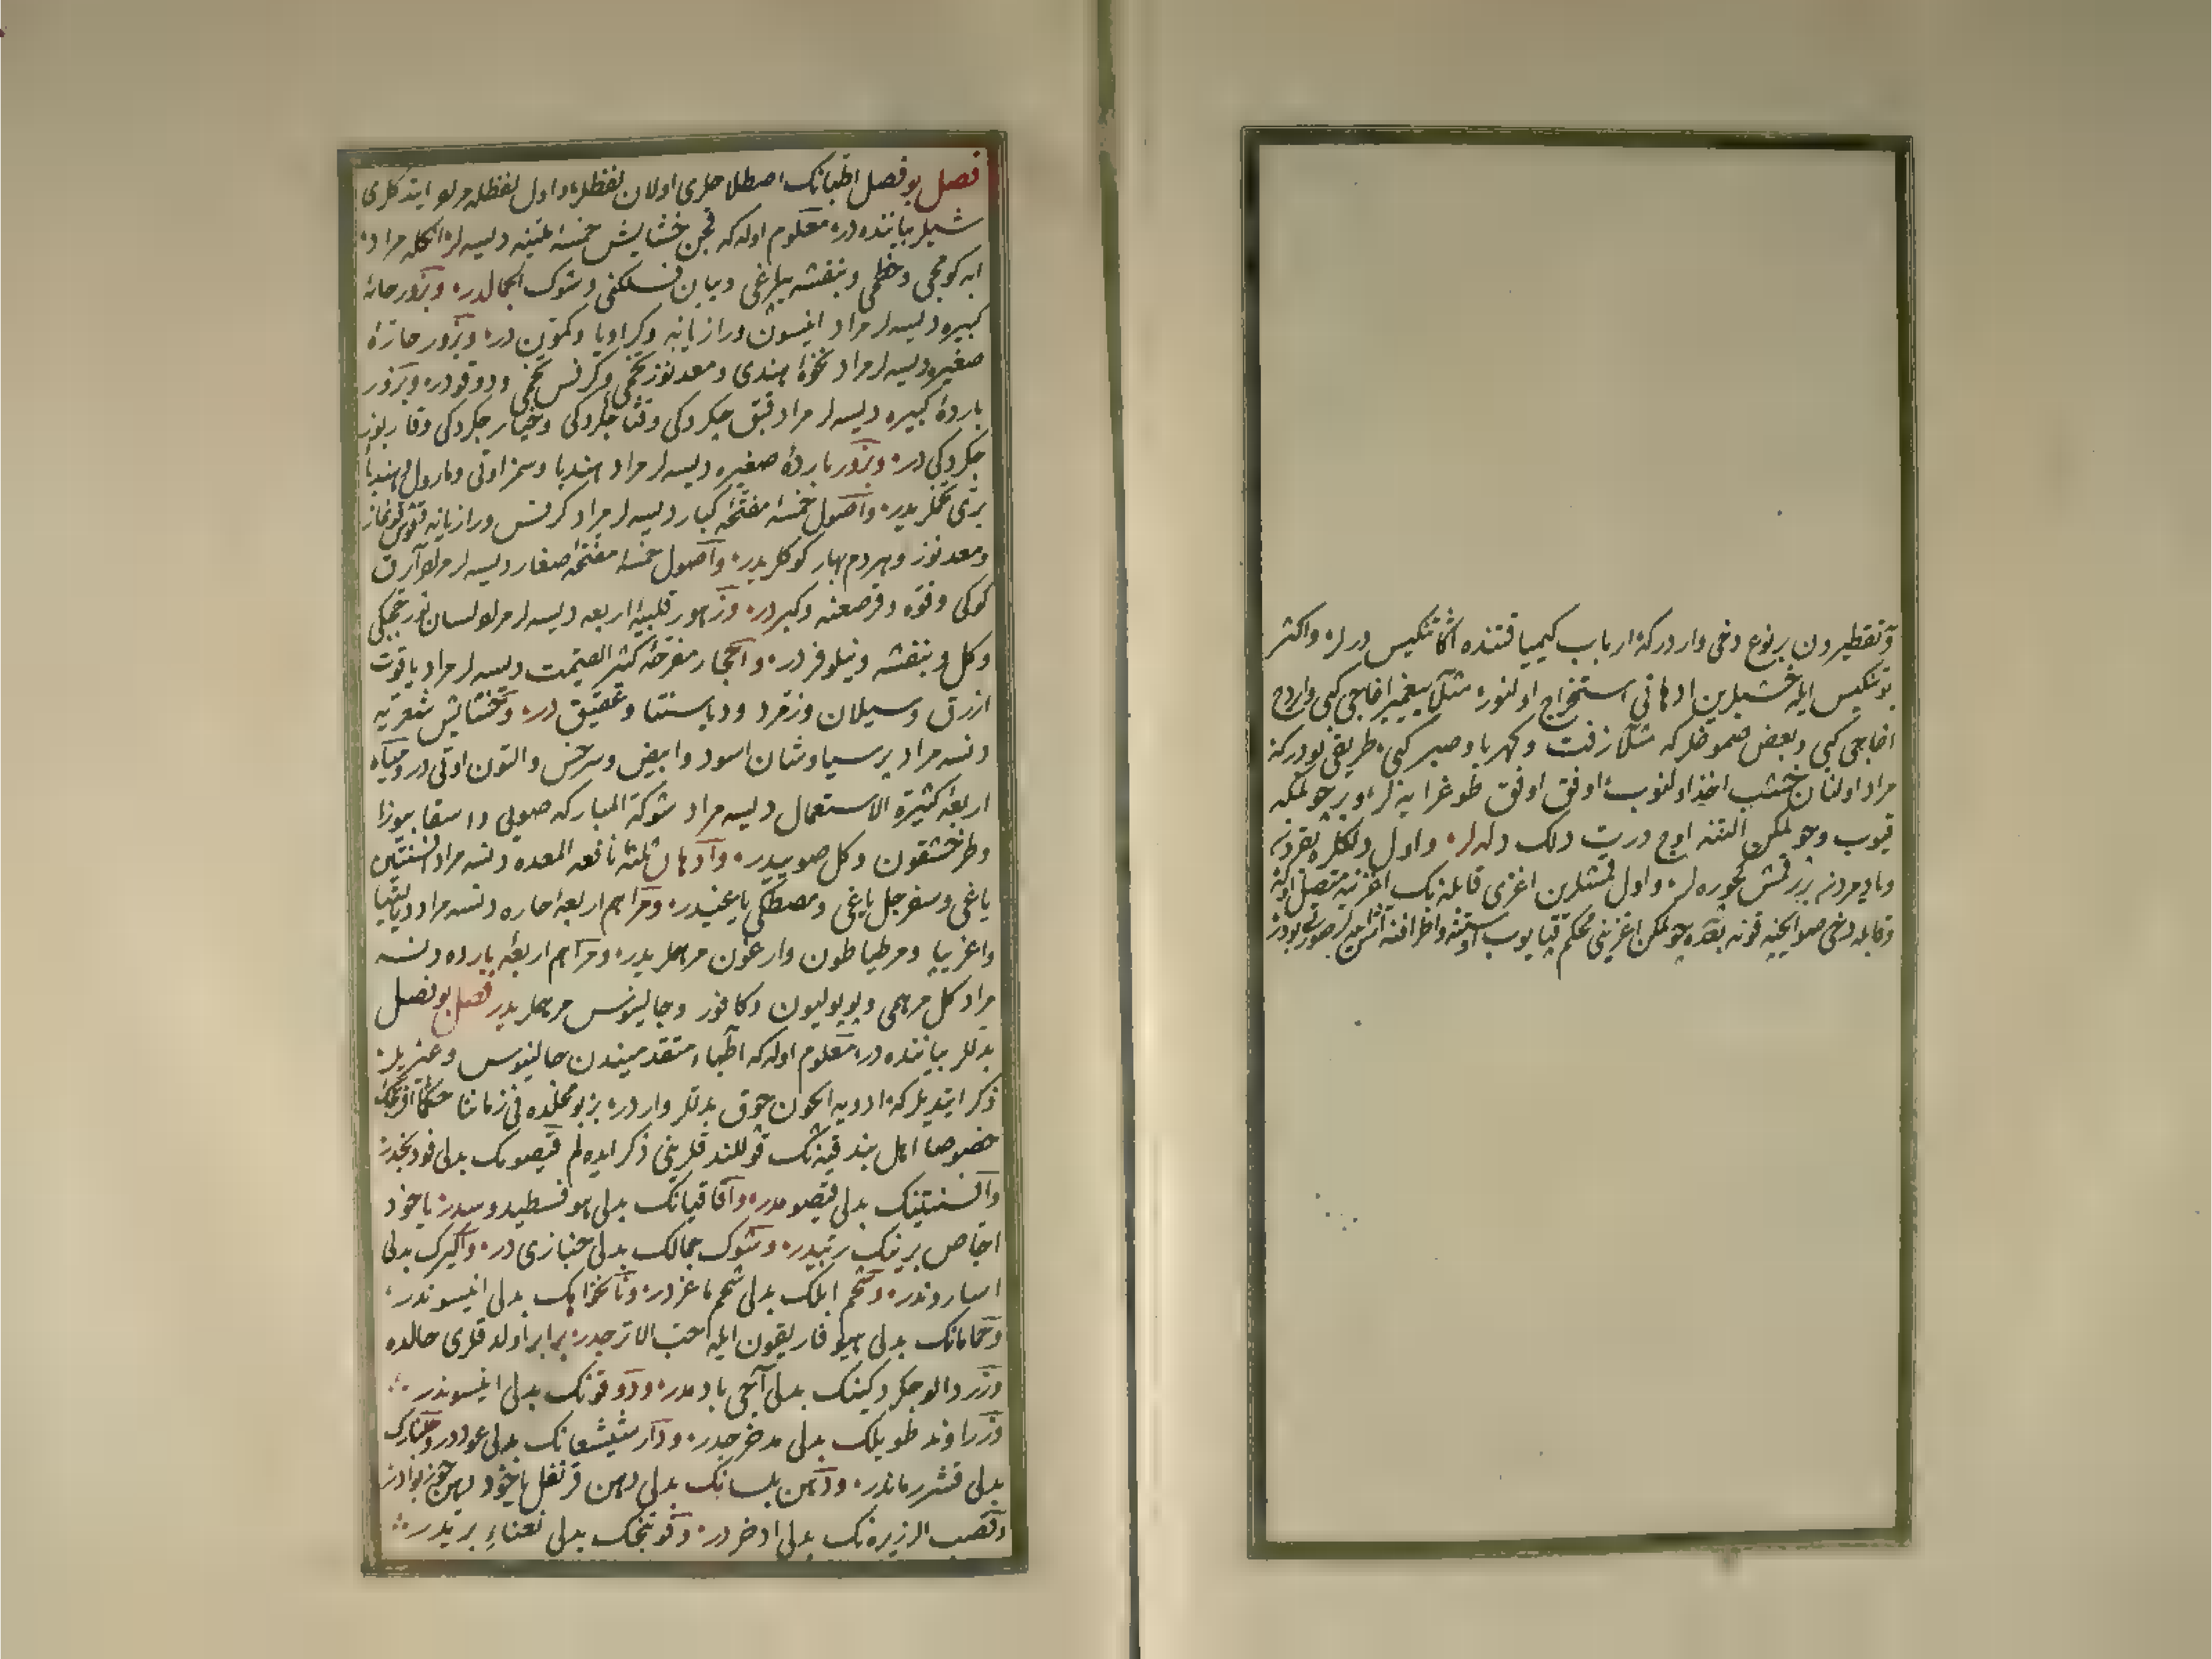 وتقطيردن بر نوع دخی واردركه ارباب كيميا قتنده اكا تنكيس ديرلر واكثر
بو تنكيس ايله خشبلرين ادهانی استخراج اولنور مثلا پيغمبر اغاجی كبی وارديج
اغاجی كبی وبعض صموغلر كه مثلا زفت وكهربا وصبر كبی طريقی بودركه
مراد اولنان خشب اخذ اولنوب اوفق اوفق طوغرايه لر وبر چولمكه
قيوب وچولمكن التنه اوچ درت دلك دله لر واول دلكلره بقردن
وياد مردن بزر قمش كچوره لر واول قمشلرين اغزی قابله نك اغزينه متصل اوله
وقابله دخی صو ايچنه قونه بعده چولمكن اغزينی محكم قپايوب اوستنه واطرافنه آتش ايده لر صورتی بودر
فصل بو فصل اطبانك اصطلاحلری اولان لفظلره واول لفظلردن مراد ايتدكلری
شيلر بياننده در معلوم اوله كه قچن حشايش خمسهٔ ملينه ديسه لر انكله مراد
ابه كومجی وخطمی وبنفشه يپراغی ويبان فسلكنی وشوك الجمالدر وبزور حارهٔ
كبيره ديسه لر مراد انيسون ورازيانه وكراويا وكمون در وبزور حارهٔ
صغيره ديسه لر مراد نخوهٔ هندی ومعدنوز تخمی وكرفس تخمی ودوقودر وبزور
باردهٔ كبيره ديسه لر مراد قبق چكردكی وقثا چكردكی وخيار چكردكی وقارپوز
چكردكی در وبزور باردهٔ صغيره ديسه لر مراد هندبا وسمز اوتی ومارول وهندباء
بری تخملريدر واصول خمسهٔ مفتحهٔ كبار ديسه لر مراد كرفس ورازيانه وقوش قونماز
ومعدنوز وهردم بهار كوكلريدر واصول خمسهٔ مفتحهٔ صغار ديسه لر مراد آيرق
كوكی وفوه وقرصعنه وكبردر وزهور قلبيهٔ اربعه ديسه لر مراد لسان ثور چيچكی
وكل وبنفشه ونيلوفر در واحجار مفرحهٔ كثير القيمت ديسه لر مراد ياقوت
ازرق وسيلان وزمرد ودياسنتا وعقيق در وحشايش شعريه
دنسه مراد برسياوشان اسود وابيض وسرخس والتون اوتی در ومياه
اربعهٔ كثيرة الاستعمال ديسه مراد شوكة المباركه صويی واسقابيوزا
وطرخشقون وكل صوييدر وادهان ثلثهٔ نافعه المعده دنسه مراد افسنتين
ياغی وسفرجل ياغی ومصطكی ياغيدر ومراهم اربعهٔ حاره دنسه مراد ديالتيا
واغريپا ومرطياطون وارغون مرهملريدر ومراهم اربعهٔ بارده دنسه
مراد كل مرهمی وپوپوليون وكافور وجالينوس مرهملريدر فصل بو فصل
بدللر بياننده در معلوم اوله كه اطباء متقدميندن جالينوس وغيريلر
ذكر ايتديلركه ادويه ايچون چوق بدللر واردر بز بو محلده فی زماننا حكماء افرنجك
خصوصا اهل بندقيه نك قوللندقلرينی ذكر ايده لم قيصومك بدلی فودنجدر
وافسنتينك بدلی قيصومدر واقاقيانك بدلی هوفسطيدوسدر ياخود
اجاص برينك ربيدر وشوك جمالك بدلی خبازی در واكيرك بدلی
اسارندر وشحم ابلك بدلی شحم ماعزدر ونانخواهك بدلی انيسوندر
وحمامانك بدلی هيوفاريقون ايله حب الاترجدر برابر اولدقلری حالده
وزردالو چكردكينك بدلی آجی بادمدر ودوقونك بدلی انيسوندر
وزراوند طويلك بدلی مدحرجدر ودارشيشعانك بدلی عوددر وجلنارك
بدلی قشر رماندر ودهن بلسانك بدلی دهن قرنفل ياخود دهن جوز بوادر
وقصب الزريره نك بدلی اذخردر وفوتنجك بدلی نعناء بريدر